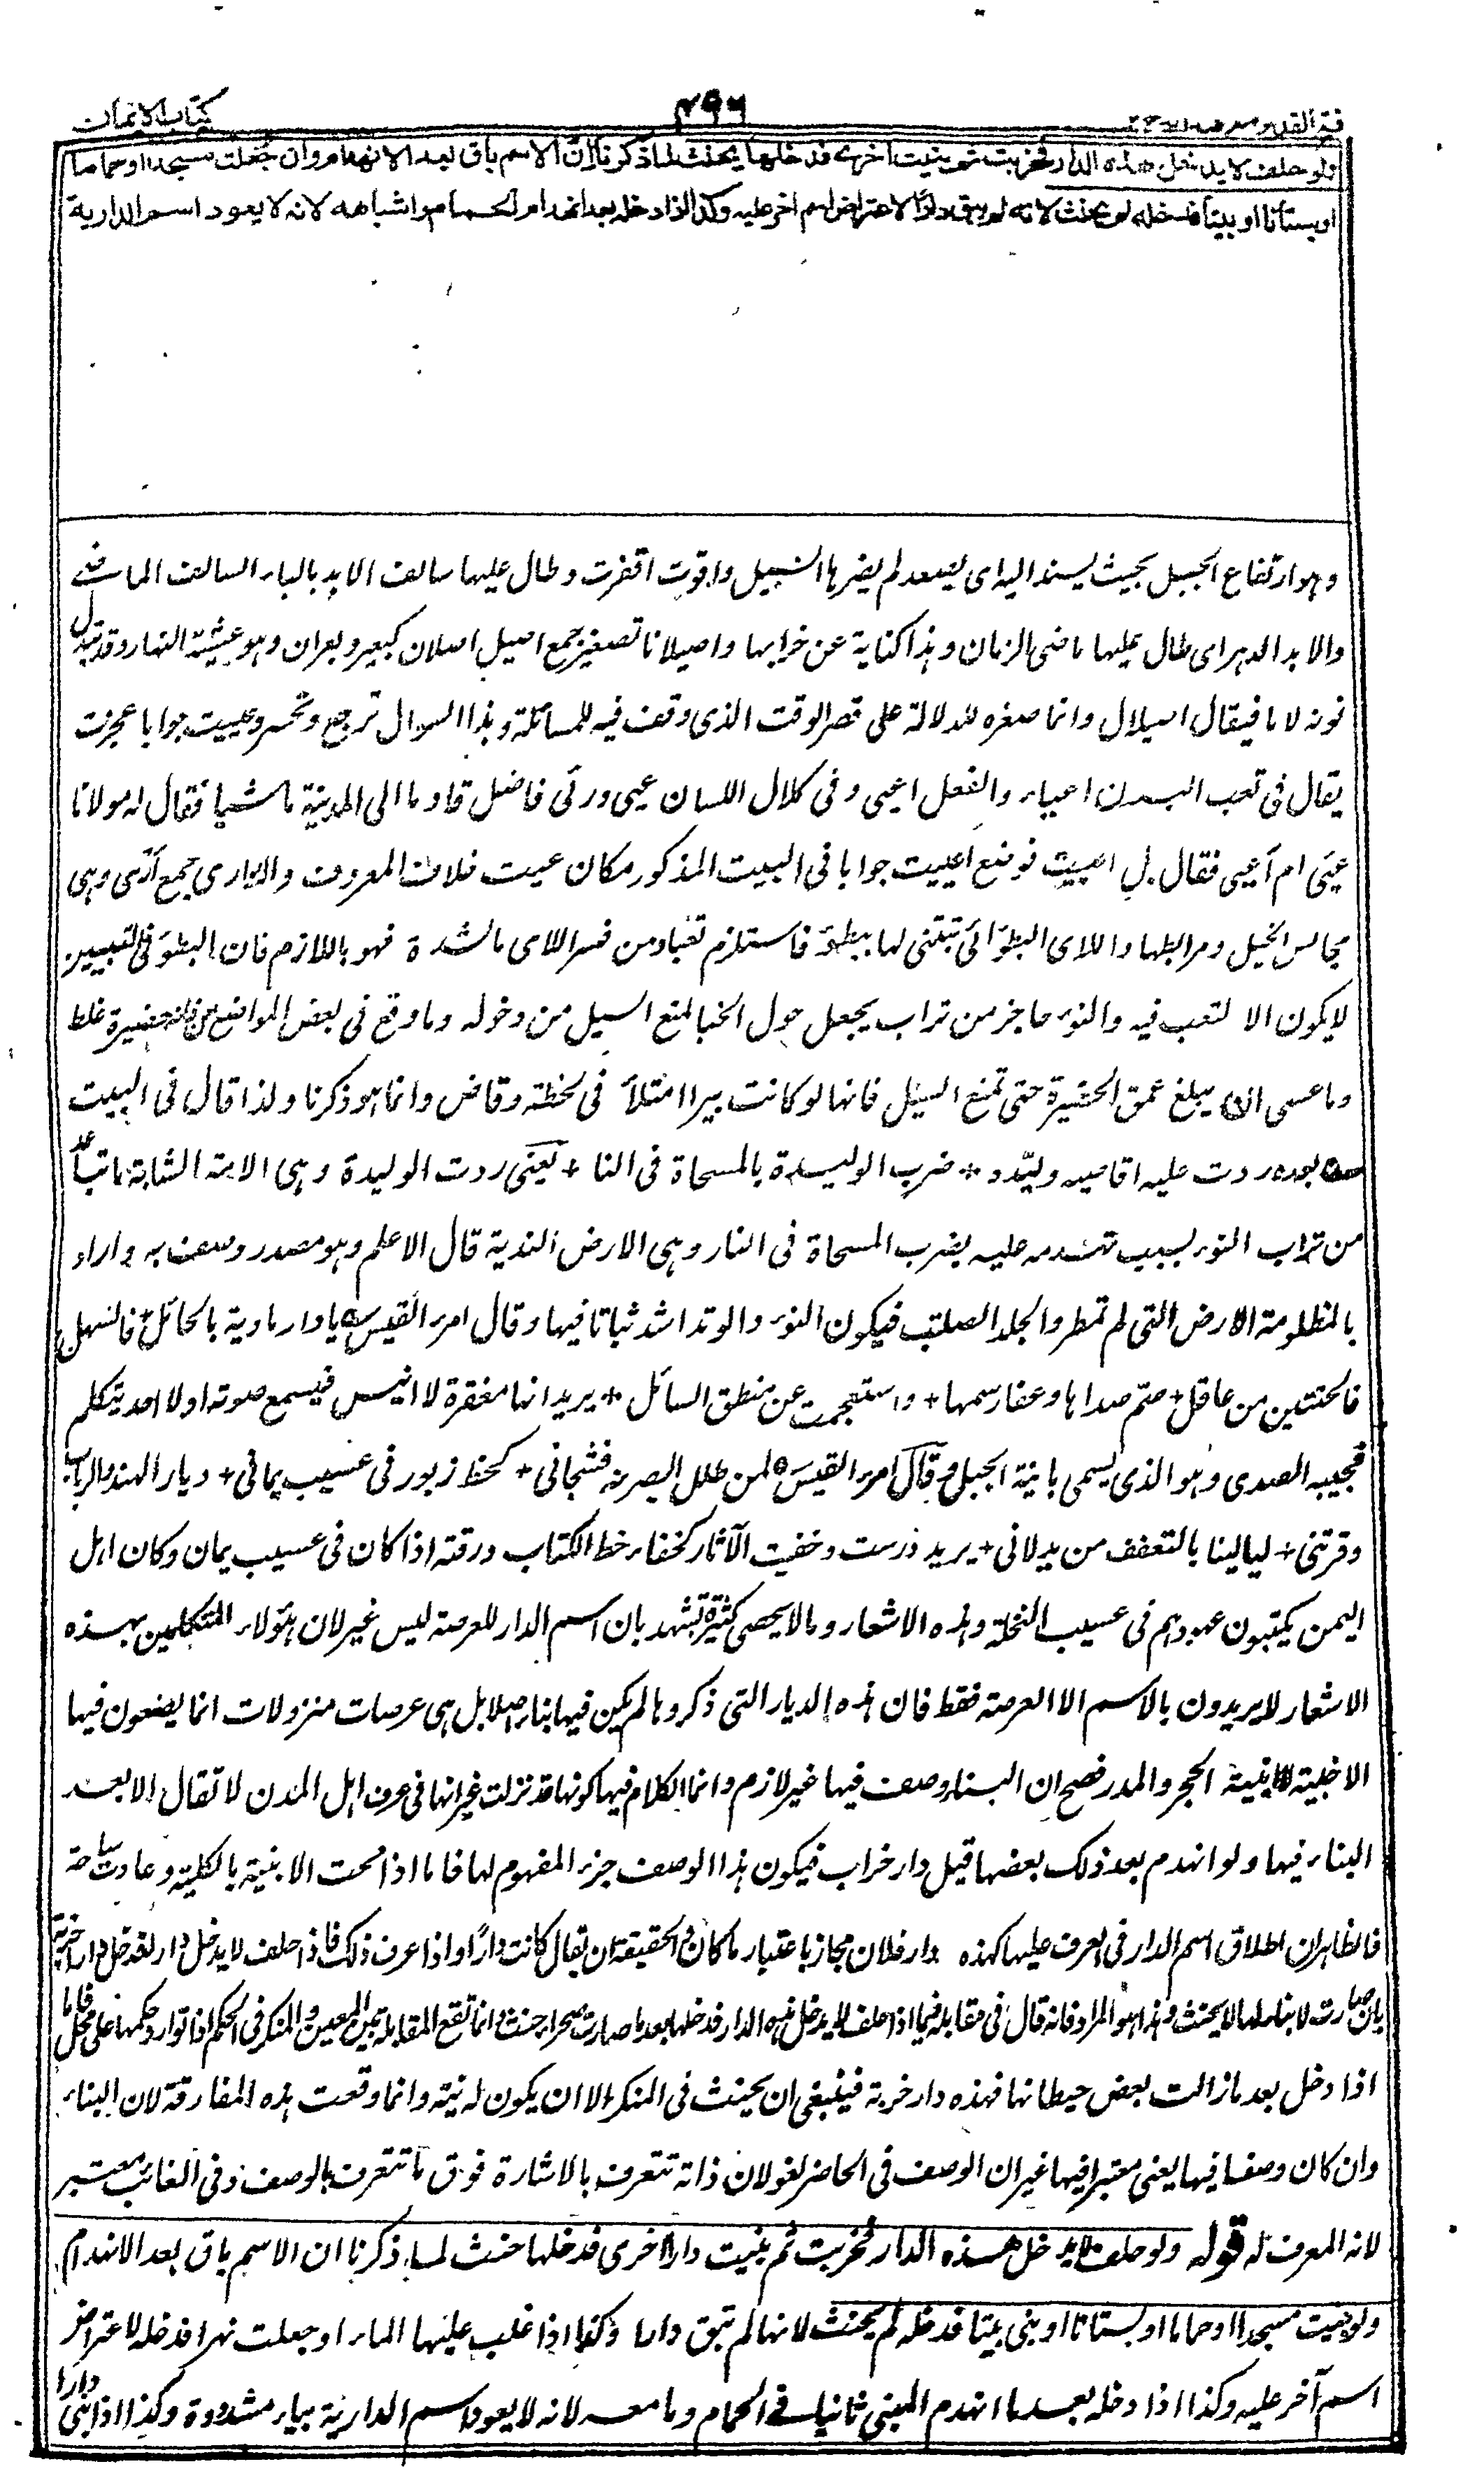 كتاب الايمان
٤٩٦
فتح القدير مع هداية
ولو حلف لا يدخل هذه الدار فخربت ثم بنيت اخرى فدخلها يحنث لما ذكرنا ان الاسم باق بعد الانهدام وان جعلت مسجدا او حماما
او بستانا او بيتا فدخله لم يحنث لانه لم يبق دارا لاعتراض اسم اخر عليه وكذا اذا دخله بعد انهدام الحمام واشباهه لانه لا يعود اسم الدارية
وهو ارتفاع الجبل بحيث يسند اليه اى يصعد لم يضرها السيل واقوت اقفرت وطال عليها سالف الابد بالباء السالف الماضى
والابد الدهر اى طال عليها ماضى الزمان وهذا كناية عن خرابها واصيلانا تصغير جمع اصيل اصلان كبعير وبعران وهو عشية النهار وقد تبدل
نونه لاما فيقال اصيلال وانما صغره للدلالة على قصر الوقت الذى وقف فيه للمسائلة وبهذا السوال ترجع وتحسر وعييت جوابا عجزت
يقال فى تعب البدن اعياء والفعل اعيى وفى كلال اللسان عيى ورئى فاضل قادما الى المدينة ماشيا فقال له مولانا
عيى ام أعيى فقال بل اعييت فوضع اعييت جوابا فى البيت المذكور مكان عييت خلاف المعروف والاوارى جمع آرى وهى
محابس الخيل ومرابطها واللاى البطؤ اى تبتنى لها ببطؤ فاستلزم تعبا ومن فسر اللاى بالشدة فهو باللازم فان البطؤ فى التبيين
لا يكون الا لتعب فيه والنؤى حاجز من تراب يجعل حول الخبا لمنع السيل من دخوله وما وقع فى بعض المواضع من انه حفيرة غلط
وما عسى ان يبلغ عمق الحفيرة حتى تمنع السيل فانها لو كانت بيرا امتلأ فى لحظة وفاض وانما هو ذكرنا ولذا قال فى البيت
بعده ردت عليه اقاصيه ولبّده + ضرب الوليدة بالمسحاة فى الثا + يعنى ردت الوليدة وهى الامة الشابة ما تباعد
من تراب النؤى بسبب تهدمه عليه بضرب المسحاة فى الثاد وهى الارض الندية قال الاعلم وهو مصدر وصف به واراد
بالمظلومة الارض التى لم تمطر والجلد الصلب فيكون النؤى والوتد اشد ثباتا فيها وقال امرء القيس يا دار ماوية بالحائل + فالسهب
فالخبتين من عاقل + صمّ صداها وعفا رسمها + واستعجمت عن منطق السائل + يريد انها مقفرة لا انيس فيسمع صوته اولا احد يتكلم
فيجيبه الصدى وهو الذى يسمى بابنة الجبل وقال امرء القيس لمن طلل ابصرته فشجانى + كخط زبور فى عسيب يمانى + ديار لهند والرباب
وفرتنى + ليالينا بالنعف من بدلانى + يريد درست وخفيت الآثار كخفاء خط الكتاب ودقته اذا كان فى عسيب يمان وكان اهل
اليمن يكتبون عهودهم فى عسيب النخلة وهذه الاشعار وما لا يحصى كثرة تشهد بان اسم الدار للعرصة ليس غير لان هؤلاء المتكلمين بهذه
الاشعار لا يريدون بالاسم الا العرصة فقط فان هذه الديار التى ذكروها لم يكن فيها بناء اصلا بل هى عرصات منزولات انما يضعون فيها
الاخبية لا ابنية الحجر والمدر فصح ان البناء وصف فيها غير لازم وانما الكلام فيها كونها قد نزلت غير انها فى عرف اهل المدن لا تقال الا بعد
البناء فيها ولو انهدم بعد ذلك بعضها قيل دار خراب فيكون هذا الوصف جزء المفهوم لها فاما اذا محت الابنية بالكلية وعادت ساحة
فالظاهر ان اطلاق اسم الدار فى العرف عليها كهذه دار فلان مجاز باعتبار ما كان فالحقيقة ان يقال كانت دارا واذا عرف ذلك فاذا حلف لا يدخل دارا فدخل دارا خربة
بان صارت لا بناء لها لا يحنث وهذا هو المراد فانه قال فى مقابله فيما اذا حلف لا يدخل هذه الدار فدخلها بعد ما صارت صحراء حنث وانما تقع المقابلة بين المعين والمنكر فى الحكم اذا توارد حكمهما على محل فاما
اذا دخل بعد ما زالت بعض حيطانها فهذه دار خربة فينبغى ان يحنث فى المنكر الا ان يكون له نية وانما وقعت هذه المفارقة لان البناء
وان كان وصفا فيها يعنى معتبرا فيها غير ان الوصف فى الحاضر لغو لان ذاته تتعرف بالاشارة فوق ما تتعرف بالوصف وفى الغائب معتبر
لانه المعرف له قوله ولو حلف لا يدخل هذه الدار فخربت ثم بنيت دارا اخرى فدخلها حنث لما ذكرنا ان الاسم باق بعد الانهدام
ولو بنيت مسجدا او حماما او بستانا او بنى بيتا فدخله لم يحنث لانها لم تبق دارا وكذا اذا غلب عليها الماء او جعلت نهرا فدخله لاعتراض
اسم آخر عليه وكذا اذا دخله بعد ما انهدم المبنى ثانيا فى الحمام وما معه لانه لا يعود اسم الدارية بياء مشددة وكذا اذا بنى دارا